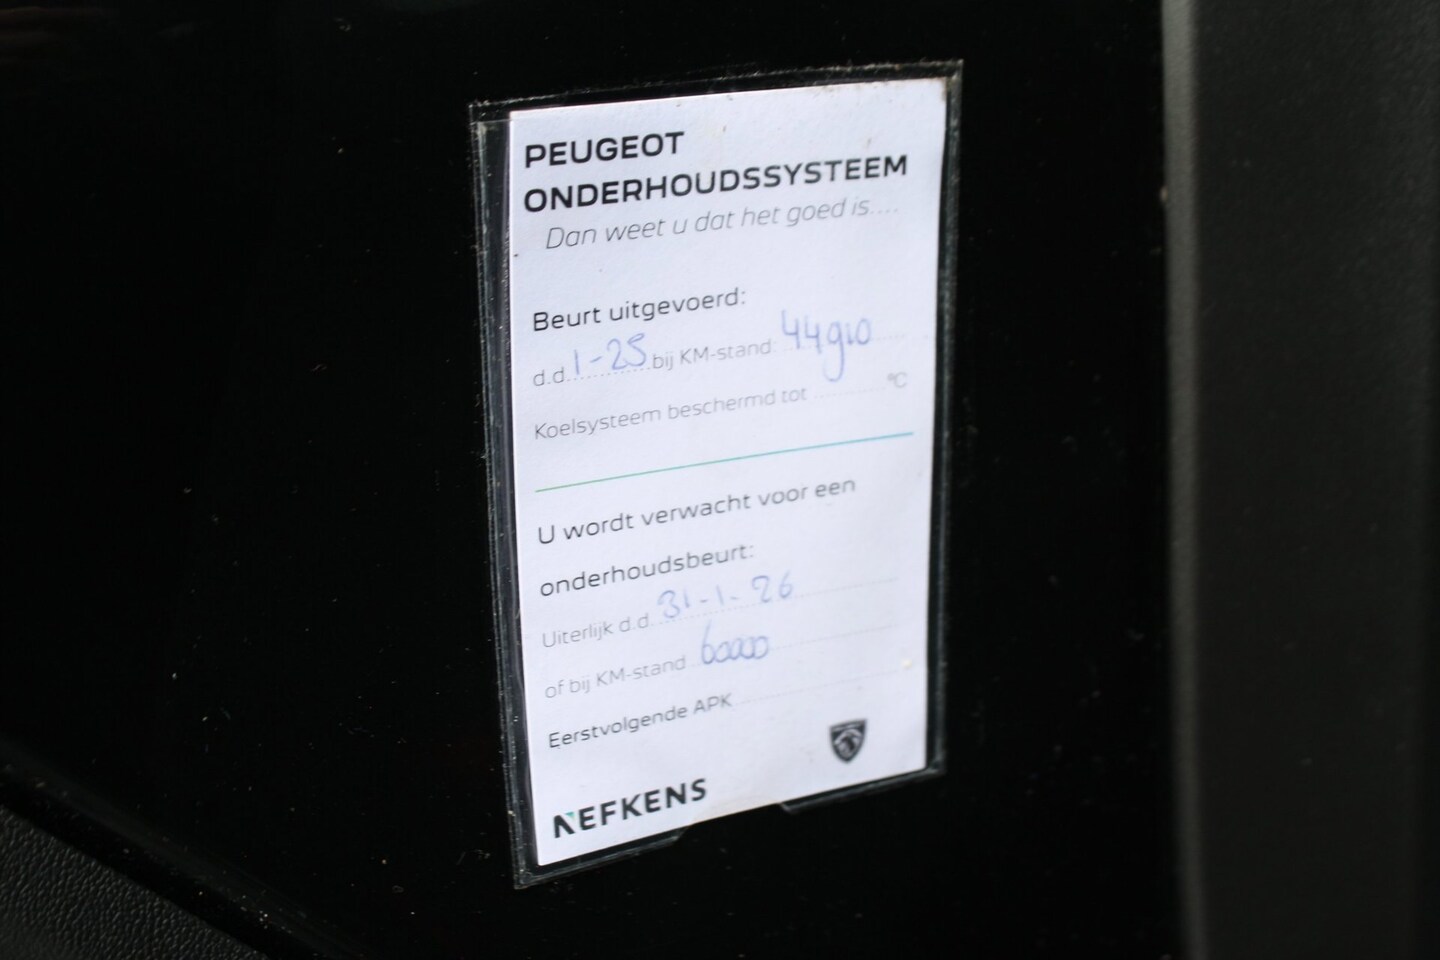 PEUGEOT
ONDERHOUDSSYSTEEM
Dan weet u dat het goed is....
Beurt uitgevoerd:
d.d. 1-25 bij KM-stand: 44910
Koelsysteem beschermd tot ........ °C
U wordt verwacht voor een
onderhoudsbeurt:
Uiterlijk d.d. 31-1-26
of bij KM-stand 60000
Eerstvolgende APK
NEFKENS